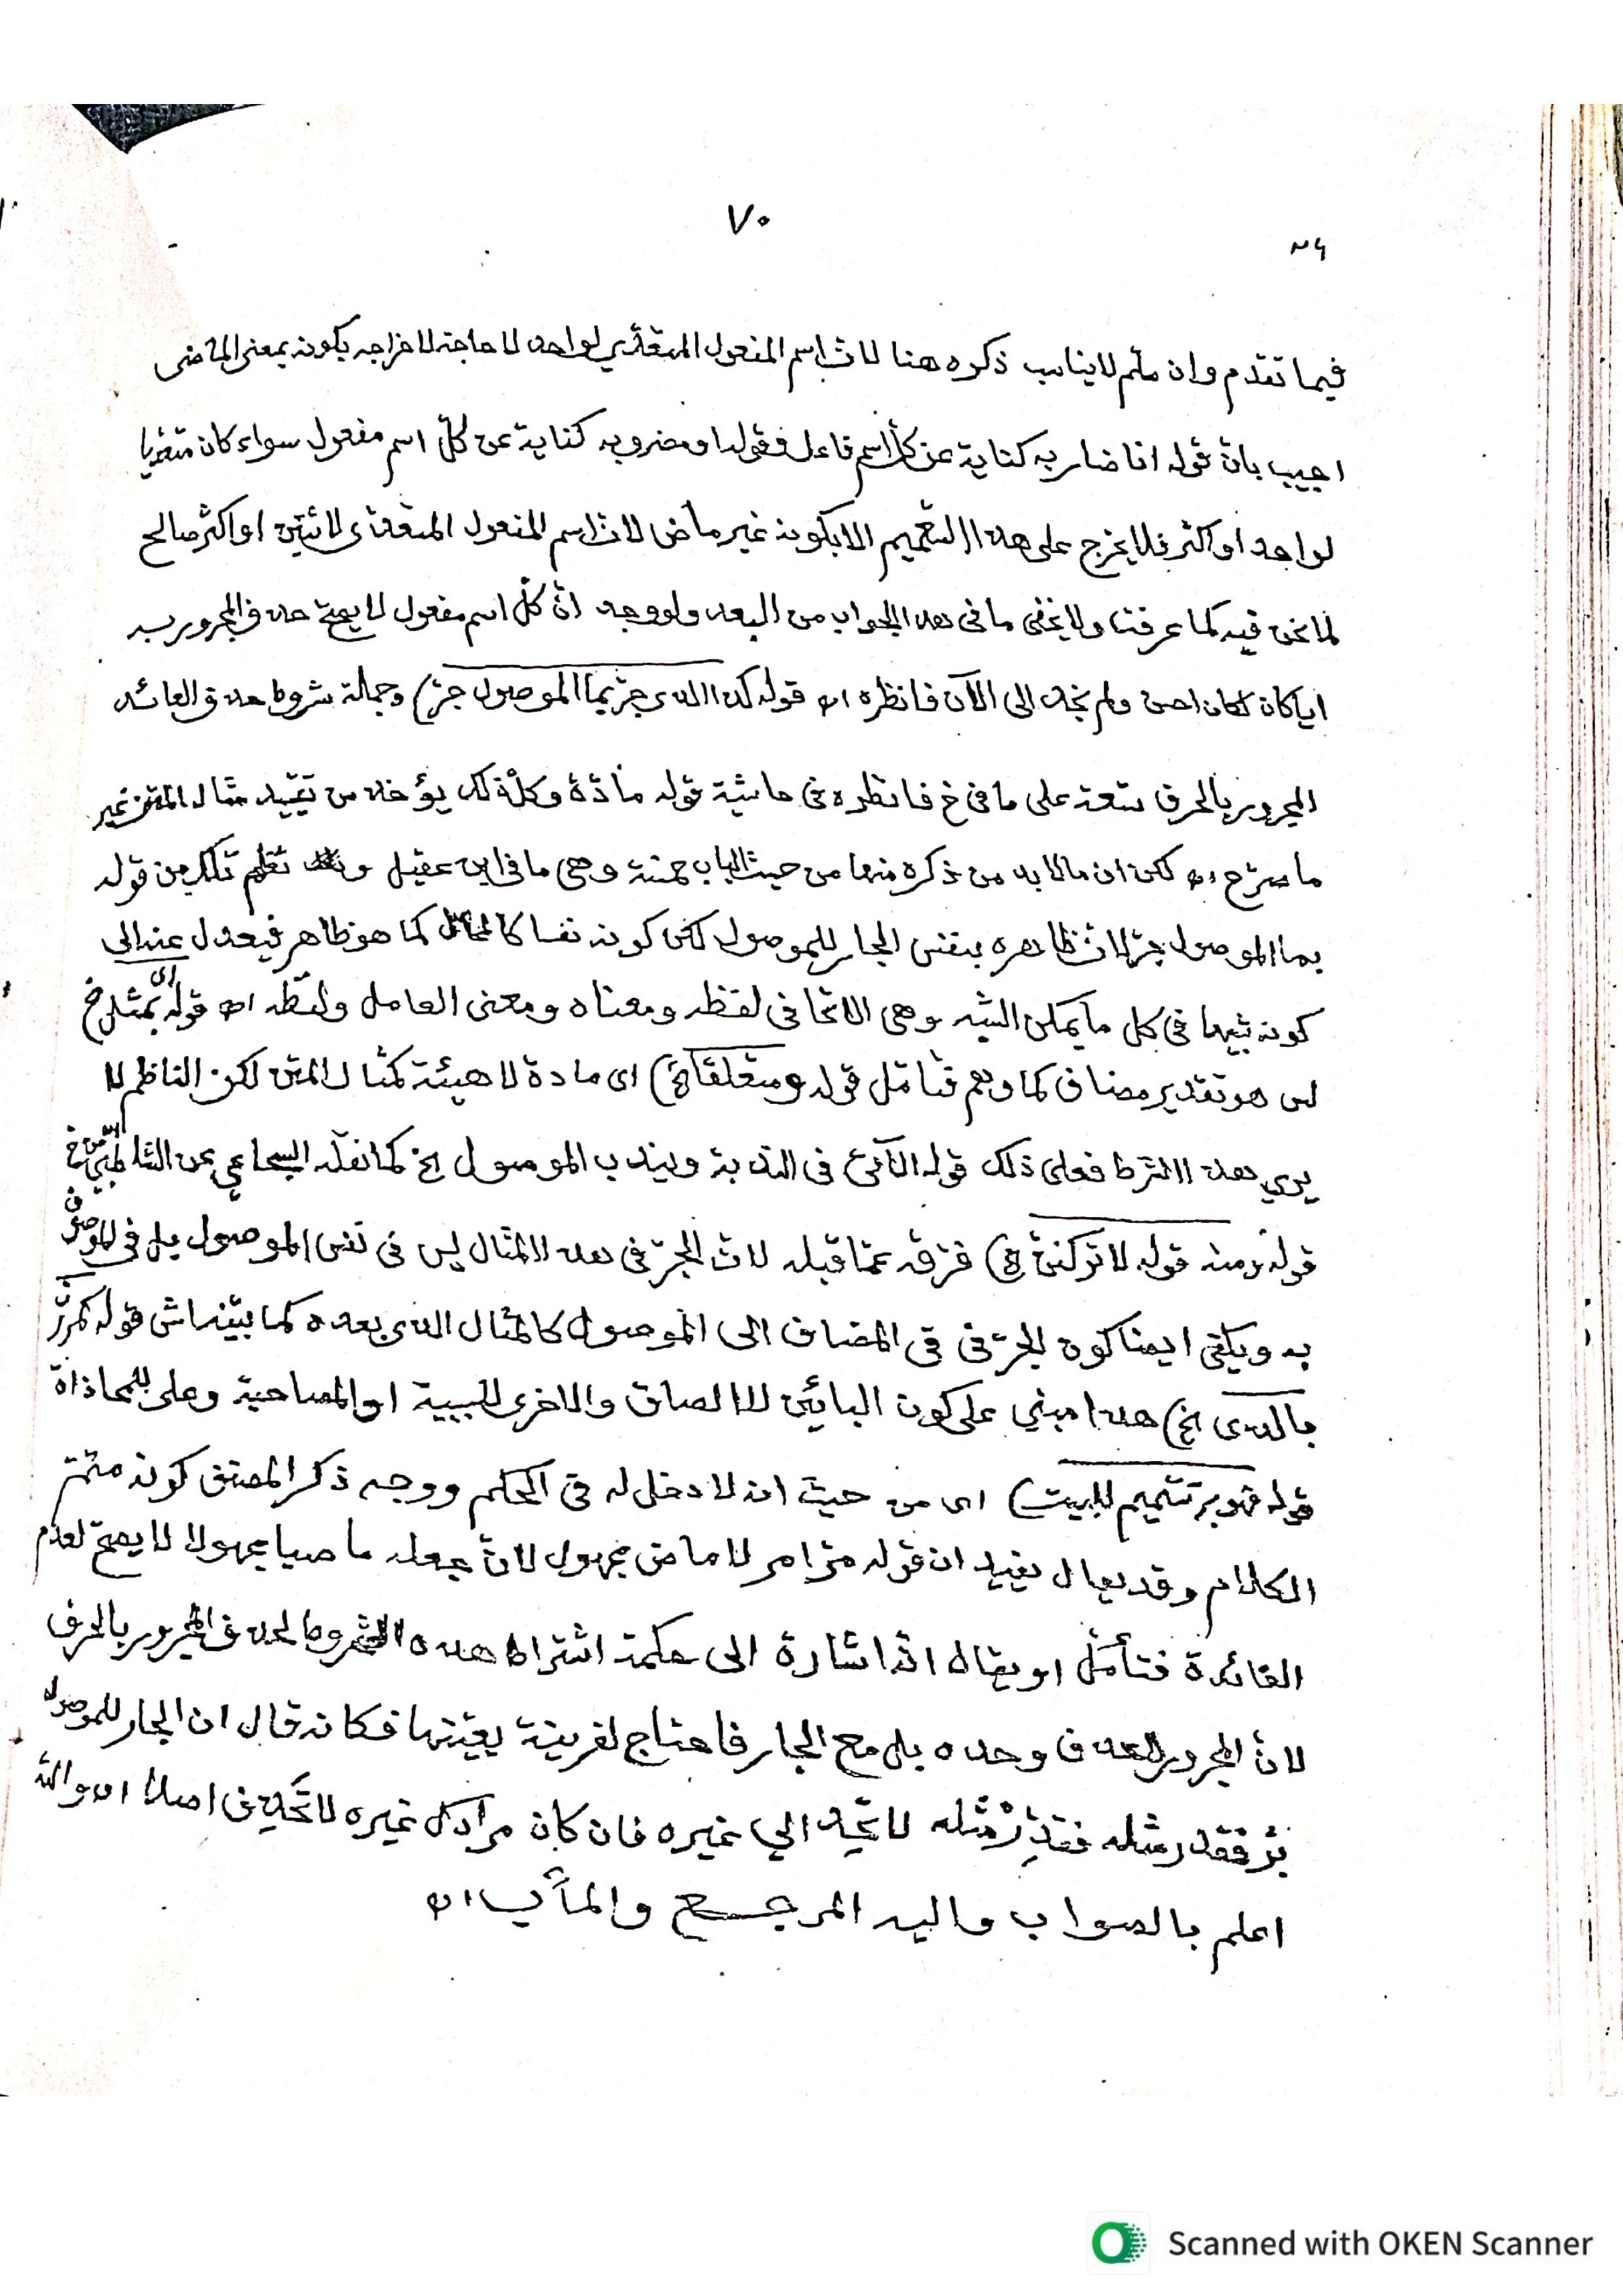 ٧٠
٣٤
فيما تقدم وان سلم لا يناسب ذكره هنا لان اسم المفعول المتعدي لواحد لا حاجة لاخراجه بكونه بمعنى الماضى
اجيب بان قوله انا ضاربه كناية عن كل اسم فاعل فقوله او مضروبه كناية عن كل اسم مفعول سواء كان متعديا
لواحد او اكثر فلا يخرج على هذا التعميم الا بكونه غير ماض لان اسم المفعول المتعدى لاثنين او اكثر صالح
لما نحن فيه كما عرفت ولا يخفى ما فى هذا الجواب من البعد ولو وجد ان كل اسم مفعول لا يصح حذف المجرور به
ايا كان لكان احسن ولم نجد الى الآن فانظره اه قوله كذا الذى جر بما الموصول جر) وجملة شروط حذف العائد
المجرور بالحرف ستعة على ما فى خ فانظره فى حاشية قوله مادة وكل ذلك يؤخذ من تقييد مثال المتن غير
ما صرح اه لكن ان ما لا بد من ذكره منها من حيث الباب خمسة وهى ما فى ابن عقيل تعلم تلك من قوله
بما الموصول جر لان ظاهره بنفس الجار للموصول لكن كونه نفسا كالمحال كما هو ظاهر فيعدل عنه الى
كونه شبها فى كل ما يمكن الشبه وهى الاتحا فى لفظه ومعناه ومعنى العامل ولفظه اه قوله اى بمثله خ
ليس هو تقدير مضاف كما وهم فتأمل قوله ومتعلقا الخ) اى مادة لا هيئة كمثال المتن لكن الناظم لا
يرى هذا الشرط فعلى ذلك قوله الآتى فى الندبة ويندب الموصول الخ كما نقله السجاعي عن الشاطبي
قوله ومنه قوله لا تركنن الخ) فرقه عما قبله لان الجر فى هذا المثال ليس فى نفس الموصول بل فى الموصوف
به ويكفى ايضا كون الجر فى المضاف الى الموصول كالمثال الذى بعده كما بينه اش قوله كمر
بالذى الخ) هذا مبني على كون البائين للالصاق والاخرى للسببية او المصاحبة وعلى للمحاذاة
قوله فهو بر تتميم للبيت) اى من حيث انه لا دخل له فى الحكم ووجه ذكر المصنف كونه متمم
الكلام وقد يقال يفيد ان قوله مر امر لا ماض مجهول لان جعله ماضيا مجهولا لا يصح لعدم
الفائدة فتأمل او يقال انه اشارة الى حكمة اشتراط هذه الشروط لحذف المجرور بالحرف
لان المجرور لا يحذف وحده بل مع الجار فاحتاج لقرينة يعينها فكانه قال ان الجار للموصول
بر فقدر مثله لا تجد الي غيره فان كان مرادك غيره لا تحذف اصلا اه والله
اعلم بالصواب واليه المرجع والمآب اه
Scanned with OKEN Scanner